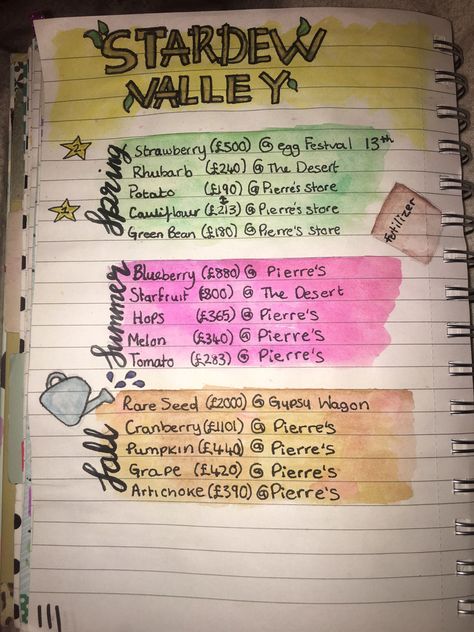 STARDEW
VALLEY
Spring
Strawberry (£500) @ Egg Festval 13th
Rhubarb (£240) @ The Desert
Potato (£190) @ Pierre's store
Cauliflower (£213) @ Pierre's store
Green Bean (£180) @ Pierre's store
fetilizer
Summer
Blueberry (£880) @ Pierre's
Starfruit (£800) @ The Desert
Hops (£365) @ Pierre's
Melon (£340) @ Pierre's
Tomato (£283) @ Pierre's
Fall
Rare Seed (£2000) @ Gypsy Wagon
Cranberry (£1101) @ Pierre's
Pumpkin (£440) @ Pierre's
Grape (£420) @ Pierre's
Artichoke (£390) @ Pierre's